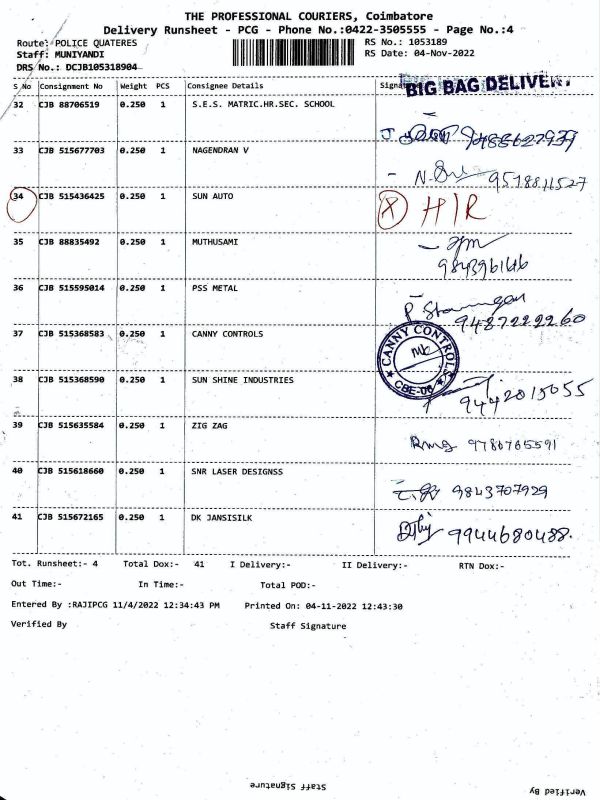 THE PROFESSIONAL COURIERS, Coimbatore
Delivery Runsheet - PCG - Phone No.:0422-3505555 - Page No.:4
Route: POLICE QUATERES RS No.: 1053189
Staff: MUNIYANDI RS Date: 04-Nov-2022
DRS No.: DCJB105318904
S No Consignment No Weight PCS Consignee Details
BIG BAG DELIVERY
32 CJB 88706519 0.250 1 S.E.S. MATRIC.HR.SEC. SCHOOL
9488627939
33 CJB 515677703 0.250 1 NAGENDRAN V
9578811527
34 CJB 515436425 0.250 1 SUN AUTO
35 CJB 88835492 0.250 1 MUTHUSAMI
36 CJB 515595014 0.250 1 PSS METAL
9487222260
37 CJB 515368583 0.250 1 CANNY CONTROLS
CANNY CONTROLS
38 CJB 515368590 0.250 1 SUN SHINE INDUSTRIES
9442015055
39 CJB 515635584 0.250 1 ZIG ZAG
9786765591
40 CJB 515618660 0.250 1 SNR LASER DESIGNSS
9843707929
41 CJB 515672165 0.250 1 DK JANSISILK
9944680488.
Tot. Runsheet:- 4 Total Dox:- 41 I Delivery:- II Delivery:- RTN Dox:-
Out Time:- In Time:- Total POD:-
Entered By :RAJIPCG 11/4/2022 12:34:43 PM Printed On: 04-11-2022 12:43:30
Verified By Staff Signature
Staff Signature Verified By